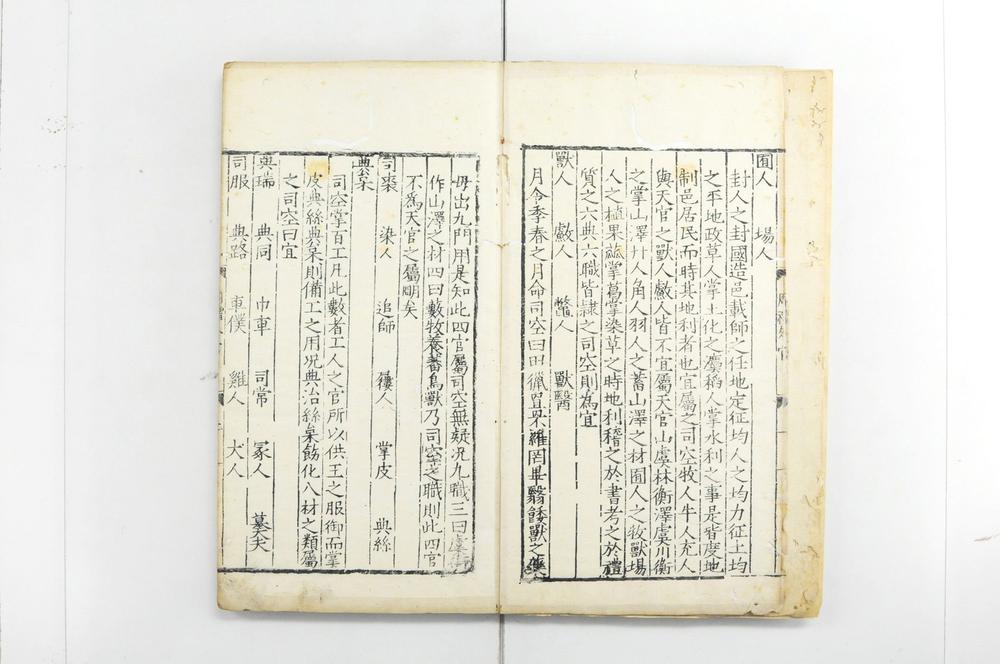 囿人　場人
封人之封國造邑載師之任地定征均人之均力征土均
之平地政草人掌土化之灋稻人掌水利之事是皆度地
制邑居民而時其地利者也宜屬之司空牧人牛人充人
與天官之獸人䱷人皆不宜屬天官山虞林衡澤虞川衡
之掌山澤丱人角人羽人之蓄山澤之材囿人之牧獸場
人之植果蓏掌葛掌染草之時地利稽之於書考之於禮
質之六典六職皆隷之司空則為宜
獸人　䱷人　鼈人　獸醫
月令季春之月命司空曰田獵罝罘羅罔畢翳餧獸之藥
毋出九門用是知此四官屬司空無疑況九職三曰虞衡
作山澤之材四曰藪牧養蕃鳥獸乃司空之職則此四官
不為天官之屬明矣
司裘　染人　追師　屨人　掌皮　典絲
典枲
司空掌百工凡此數者工人之官所以供王之服御而掌
皮典絲典枲則備工之用況典冶絲枲飭化八材之類屬
之司空曰宜
典瑞　典同　巾車　司常　冢人　墓大夫
司服　典路　車僕　雞人　犬人